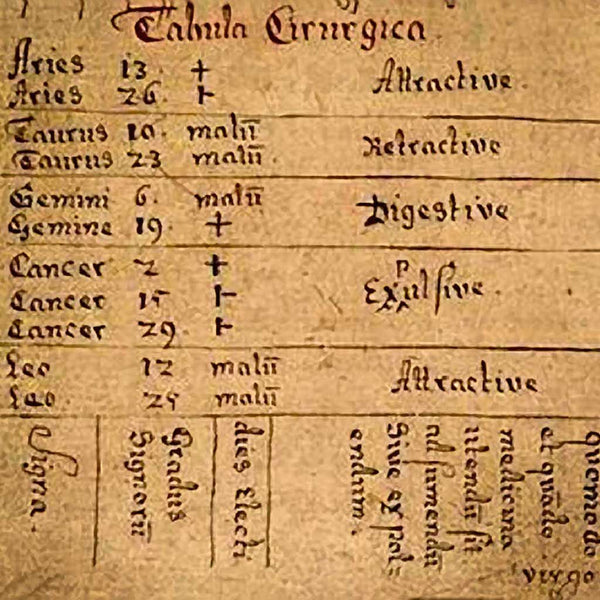 Tabula Cirurgica.
Aries 13. + Attractive.
Aries 26. ⊢
Taurus 10. malū Retractive
Taurus 23 malū.
Gemini 6. malū Digestive
Gemine 19. +
Cancer 2 + Expulsive.
Cancer 15 ⊢
Cancer 29. ⊢
Leo 12 malū Attractive
Leo. 25 malū
Signa.
Gradus
Signorū
dies Electi
quomodo
et quādo
medicina
utendū sit
ad sumendū
Sive expel=
endum.
virgo